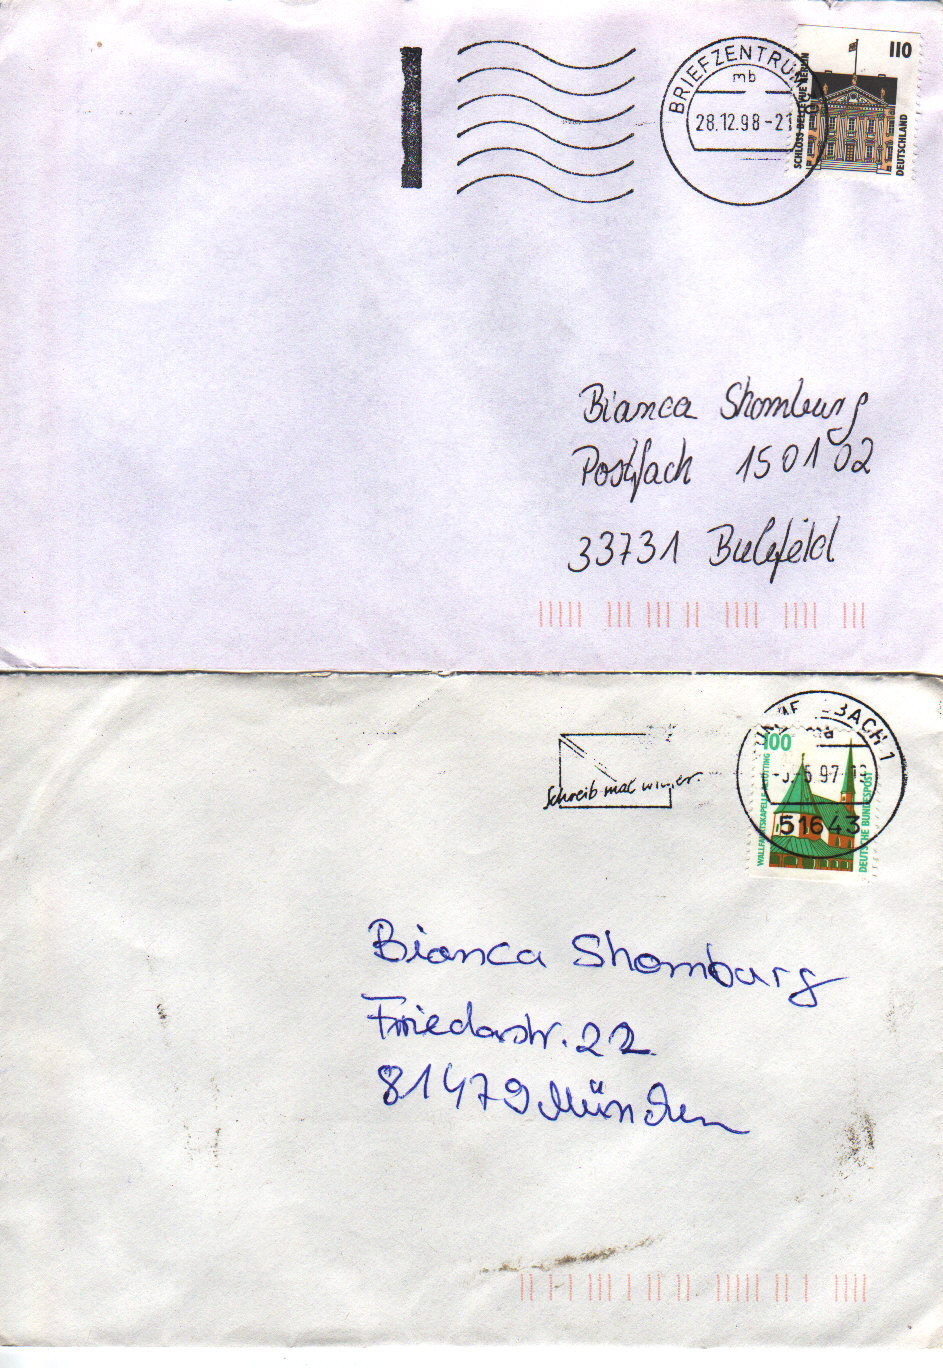 BRIEFZENTRUM
mb
28.12.98-21
110
SCHLOSS BELLEVUE BERLIN
DEUTSCHLAND
Bianca Shomburg
Postfach 150102
33731 Bielefeld
BACH 1
100
WALLFAHRTSKAPELLE ALTÖTTING
DEUTSCHE BUNDESPOST
51643
Schreib mal wieder.
Bianca Shomburg
Friedastr. 22
81479 München